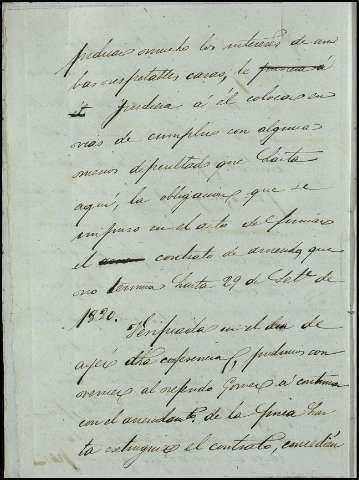 judicar mucho los intereses de am
bas respetables casas, le
pusiera á él colocar en
vias de cumplir con alguna
menos dificultad que hasta
aquí, la obligacion que se
impuso en el acto de firmar
el contrato de arriendo, que
no termina hasta 29 de Setre de
1890.
Verificada en el dia de
ayer dha conferencia, pudimos con
vencer al referido Gomez á continuar
con el arrendamto de la finca has
ta extinguir el contrato, concedién